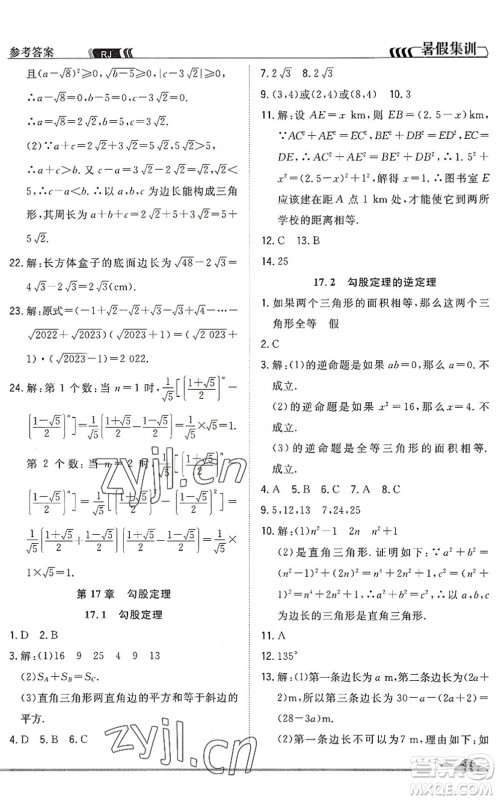 参考答案
RJ
暑假集训
且(a-√8)²≥0,√(b-5)≥0,|c-3√2|≥0,
∴a-√8=0,b-5=0,c-3√2=0,
∴a=2√2,b=5,c=3√2.
(2)∵a<c<b,a+c=2√2+3√2=5√2>5,
∴a+c>b.又∵c-a=3√2-2√2=√2<5,
∴c-a<b.∴以a,b,c为边长能构成三角
形,其周长为a+b+c=2√2+5+3√2=5+
5√2.
22.解:长方体盒子的底面边长是√48-2√3=
4√3-2√3=2√3(cm).
23.解:原式=(-1+√2-√2+√3-√3+…-
√2022+√2023)(1+√2023)=(-1+√2023)
·(√2023+1)=2 022.
24.解:第1个数:当n=1时,1/√5[((1+√5)/2)ⁿ-
((1-√5)/2)ⁿ]=1/√5((1+√5)/2-(1-√5)/2)=1/√5×√5=1.
第2个数:当n=2时,1/√5[((1+√5)/2)ⁿ-
((1-√5)/2)ⁿ]=1/√5[((1+√5)/2)²-((1-√5)/2)²]=
1/√5((1+√5)/2+(1-√5)/2)((1+√5)/2-(1-√5)/2)=1/√5×
1×√5=1.
第17章 勾股定理
17.1 勾股定理
1.D 2.B
3.解:(1)16 9 25 4 9 13
(2)S_A+S_B=S_C
(3)直角三角形两直角边的平方和等于斜边
的平方.
4.D 5.B 6.C
7.2√3 8.2√3
9.(3,4)或(2,4)或(8,4) 10.3
11.解:设AE=x km,则EB=(2.5-x)km.
∵AC²+AE²=EC²,BE²+DB²=ED²,EC=
DE,∴AC²+AE²=BE²+DB²,∴1.5²+
x²=(2.5-x)²+1²,解得x=1.∴图书室E
应该建在距点A 1 km处,才能使它到两所
学校的距离相等.
12.C 13.B
14.25
17.2 勾股定理的逆定理
1.如果两个三角形的面积相等,那么这两个三
角形全等 假
2.C
3.解:(1)的逆命题是如果ab=0,那么a=0.不
成立.
(2)的逆命题是如果x²=16,那么x=4.不
成立.
(3)的逆命题是全等三角形的面积相等.
成立.
4.A 5.B 6.C 7.B 8.C
9.5,12,13 7,24,25
10.解:(1)n²-1 2n n²+1
(2)是直角三角形,证明如下:∵a²+b²=
(n²-1)²+(2n)²=(n²+1)²=c²,∴以a,b,c
为边长的三角形是直角三角形.
11.A
12.135°
13.解:(1)∵第一条边长为a m,第二条边长为
(2a+2)m,∴第三条边长为30-a-(2a+2)=
(28-3a)m.
(2)不可以.理由如下:
zyjl.cn
zyjl.cn
答案圈
MXQE.COM